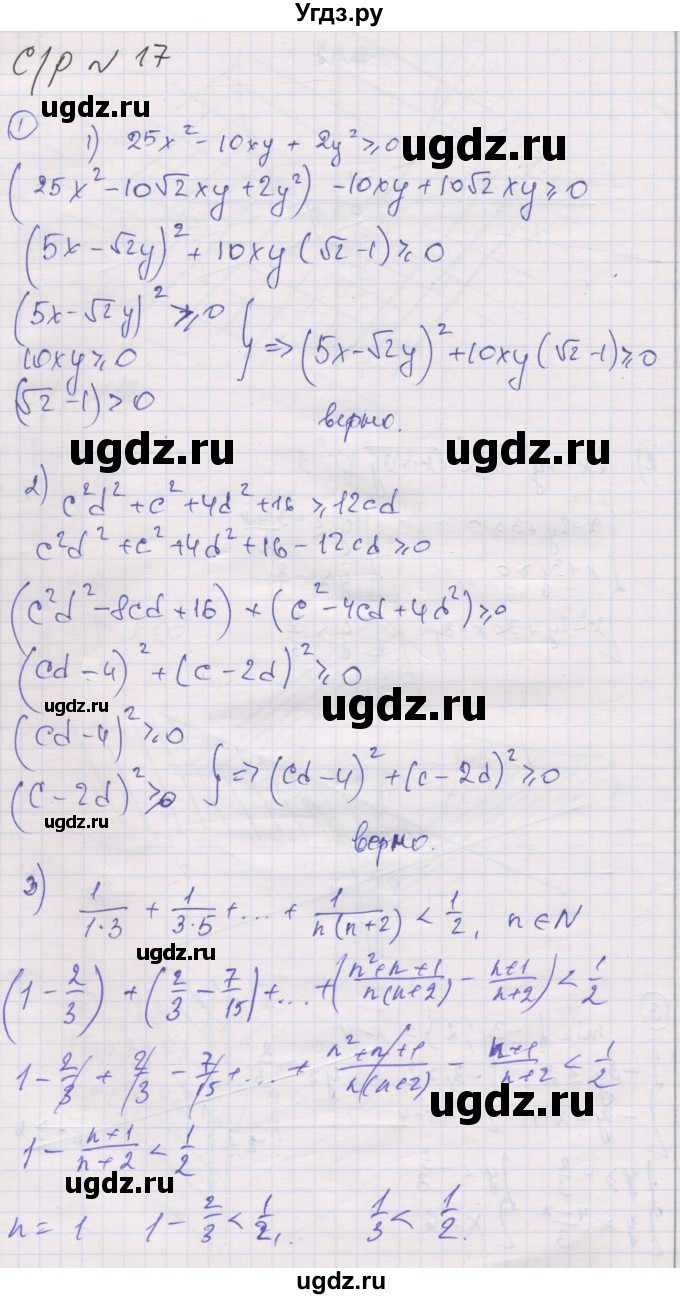 Угдз.ру
С/р № 17
ugdz.ru ugdz.ru
1 1) 25x² - 10xy + 2y² ⩾ 0
(25x² - 10√2xy + 2y²) - 10xy + 10√2xy ⩾ 0
(5x - √2y)² + 10xy(√2 - 1) ⩾ 0
ugdz.ru ugdz.ru
(5x - √2y)² ⩾ 0
10xy ⩾ 0 } => (5x - √2y)² + 10xy(√2 - 1) ⩾ 0
(√2 - 1) > 0
верно.
ugdz.ru ugdz.ru
2) c²d² + c² + 4d² + 16 ⩾ 12cd
c²d² + c² + 4d² + 16 - 12cd ⩾ 0
ugdz.ru
(c²d² - 8cd + 16) + (c² - 4cd + 4d²) ⩾ 0
(cd - 4)² + (c - 2d)² ⩾ 0
ugdz.ru ugdz.ru
(cd - 4)² ⩾ 0
(c - 2d)² ⩾ 0 } => (cd - 4)² + (c - 2d)² ⩾ 0
ugdz.ru
верно.
3) 1/(1·3) + 1/(3·5) + ... + 1/(n(n+2)) < 1/2, n ∈ N
ugdz.ru
(1 - 2/3) + (2/3 - 7/15) + ... + ((n²+n+1)/(n(n+2)) - (n+1)/(n+2)) < 1/2
1 - 2/3 + 2/3 - 7/15 + ... + (n²+n+1)/(n(n+2)) - (n+1)/(n+2) < 1/2
ugdz.ru
1 - (n+1)/(n+2) < 1/2
ugdz.ru
n = 1 1 - 2/3 < 1/2, 1/3 < 1/2.
ugdz.ru